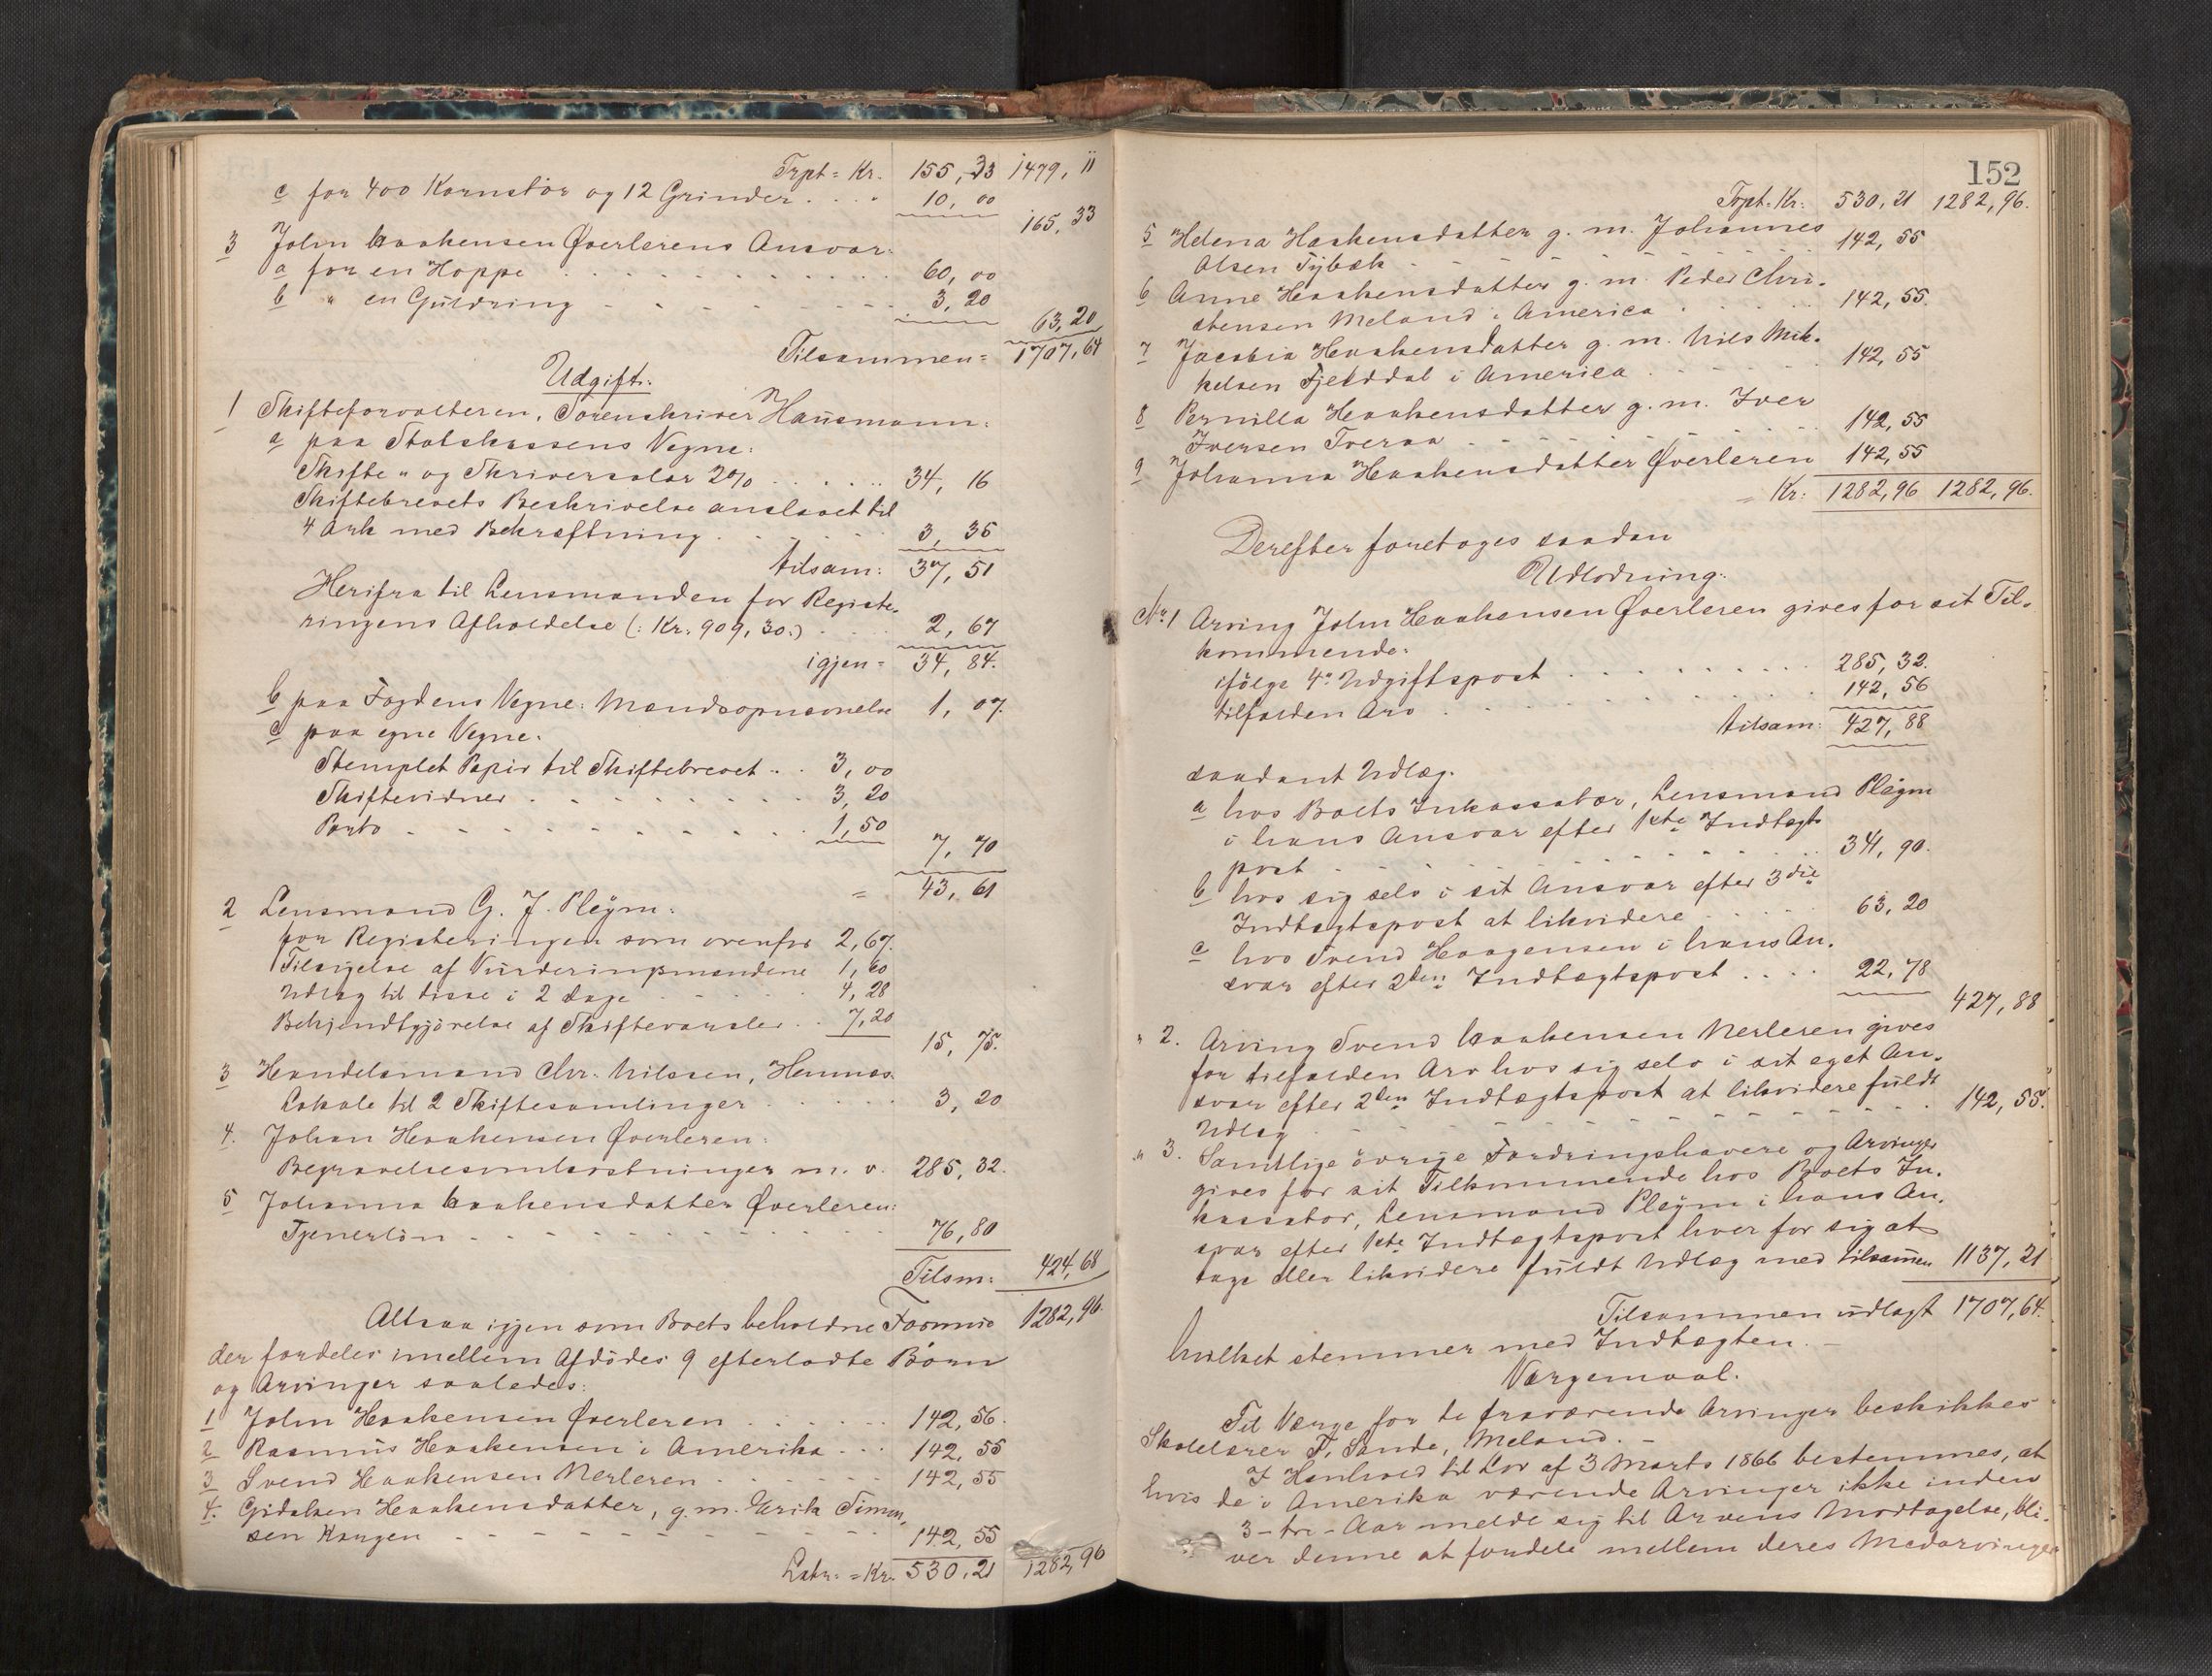 Trpt = Kr. 155,33 1479,11
c for 400 Kornstør og 12 Grinder . . . . 10,00
165,33
3 John Haakensen Øverlerens Ansvar:
a for en Hoppe . . . . 60,00
b " en Guldring - - - - 3,20
63,20
Tilsammen = 1707,64
Udgift:
1 Skifteforvalteren, Sorenskriver Hausmann:
a paa Statskassens Vegne:
Skifte- og Skriversalær 2% . . . . 34,16
Skiftebrevets Beskrivelse anslaaet til
4 Ark med Bekræftning . . . . 3,35
tilsam: 37,51
Herifra til Lensmanden for Registe-
ringens Afholdelse (: Kr. 909,30:) . . . . 2,67
igjen = 34,84.
b paa Fogdens Vegne: Mandsopnævnelse 1,07.
c paa egne Vegne:
Stemplet Papir til Skiftebrevet . . . 3,00
Skiftevidner . . . . 3,20
Porto - - - - 1,50
7,70
= 43,61
2 Lensmand G. J. Pleÿm:
for Registeringen som ovenfor 2,67.
Tilsigelse af Vurderingsmændene 1,60
Udlæg til disse i 2 dage . . . . 4,28
Bekjendtgjørelse af Skiftevarsler . . 7,20
15,75.
3 Handelsmand Chr. Nilssen, Hemnæs.
Lokale til 2 Skiftesamlinger . . . . 3,20
4. Johan Haakensen Øverleren:
Begravelsesomkostninger m. v. 285,32.
5 Johanna Haakensdatter Øverleren:
Tjenerløn - - - - 76,80
Tilsm: 424,68
Altsaa igjen som Boets beholdne Formue 1282,96.
der fordeles imellem Afdødes 9 efterladte Børn
og Arvinger saaledes:
1 John Haakensen Øverleren . . . . 142,56.
2 Rasmus Haakensen i Amerika . . . 142,55
3 Svend Haakensen Nerleren . . . . 142,55
4. Gidsken Haakensdatter, g. m. Erik Simon-
sen Kangen - - - - 142,55
Latr: = Kr. 530,21 1282,96
152
Trpt. Kr: 530,21 1282,96.
5 Helena Haakensdatter g. m. Johannes
Olsen Tÿbæk - - - - 142,55
6 Anne Haakensdatter g. m. Peder Chri-
stensen Meland i America . . . . 142,55.
7 Jacobia Haakensdatter g. m. Nils Mik-
kelsen Fjelddal i America . . . . 142,55
8 Pernilla Haakensdatter g. m. Iver
Iversen Tveraa - - - - 142,55
9 Johanna Haakensdatter Øverleren 142,55
= Kr: 1282,96 1282,96.
Derefter foretages saadan
Udlodning:
No. 1 Arving John Haakensen Øverleren gives for sit Til-
kommende:
ifølge 4de Udgiftspost . . . . 285,32.
tilfalden Arv . . . . 142,56
tilsam: 427,88
saadant Udlæg.
a hos Boets Inkassator, Lensmand Pleÿm
i hans Ansvar efter 1ste Indtægts
post - - - - 341,90.
b hos sig selv i sit Ansvar efter 3die
Indtægtspost at likvidere . . . . 63,20
c hos Svend Haagensen i hans An-
svar efter 2den Indtægtspost . . . . 22,78
427,88
" 2. Arving Svend Haakensen Nerleren gives
for tilfalden Arv hos sig selv i sit eget An-
svar efter 2den Indtægtspost at likvidere fuldt
Udlæg - - - - 142,55.
" 3. Samtlige øvrige Fordringshavere og Arvinger
gives for sit Tilkommende hos Boets In-
kassator, Lensmand Pleÿm i hans An-
svar efter 1ste Indtægtspost hver for sig at
tage eller likvidere fuldt Udlæg med tilsammen 1137,21
Tilsammen udlagt 1707,64.
hvilket stemmer med Indtægten. —
Værgemaal.
Til Værge for de fraværende Arvinger beskikkes
Skolelærer T. Sande, Meland. —
I Henhold til Lov af 3 Marts 1866 bestemmes, at
hvis de i Amerika værende Arvinger ikke inden
3 - tre - Aar melde sig til Arvens Modtagelse, bli-
ver denne at fordele mellem deres Medarvinger